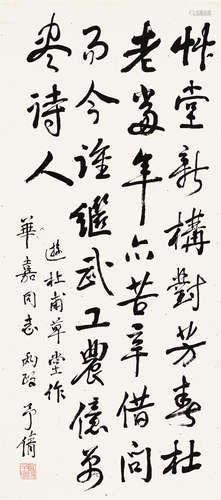 艸堂新構對芳春杜
老當年亦苦辛借問
而今誰繼武工農億万
盡詩人
遊杜甫草堂作
華嘉同志兩政 予倩